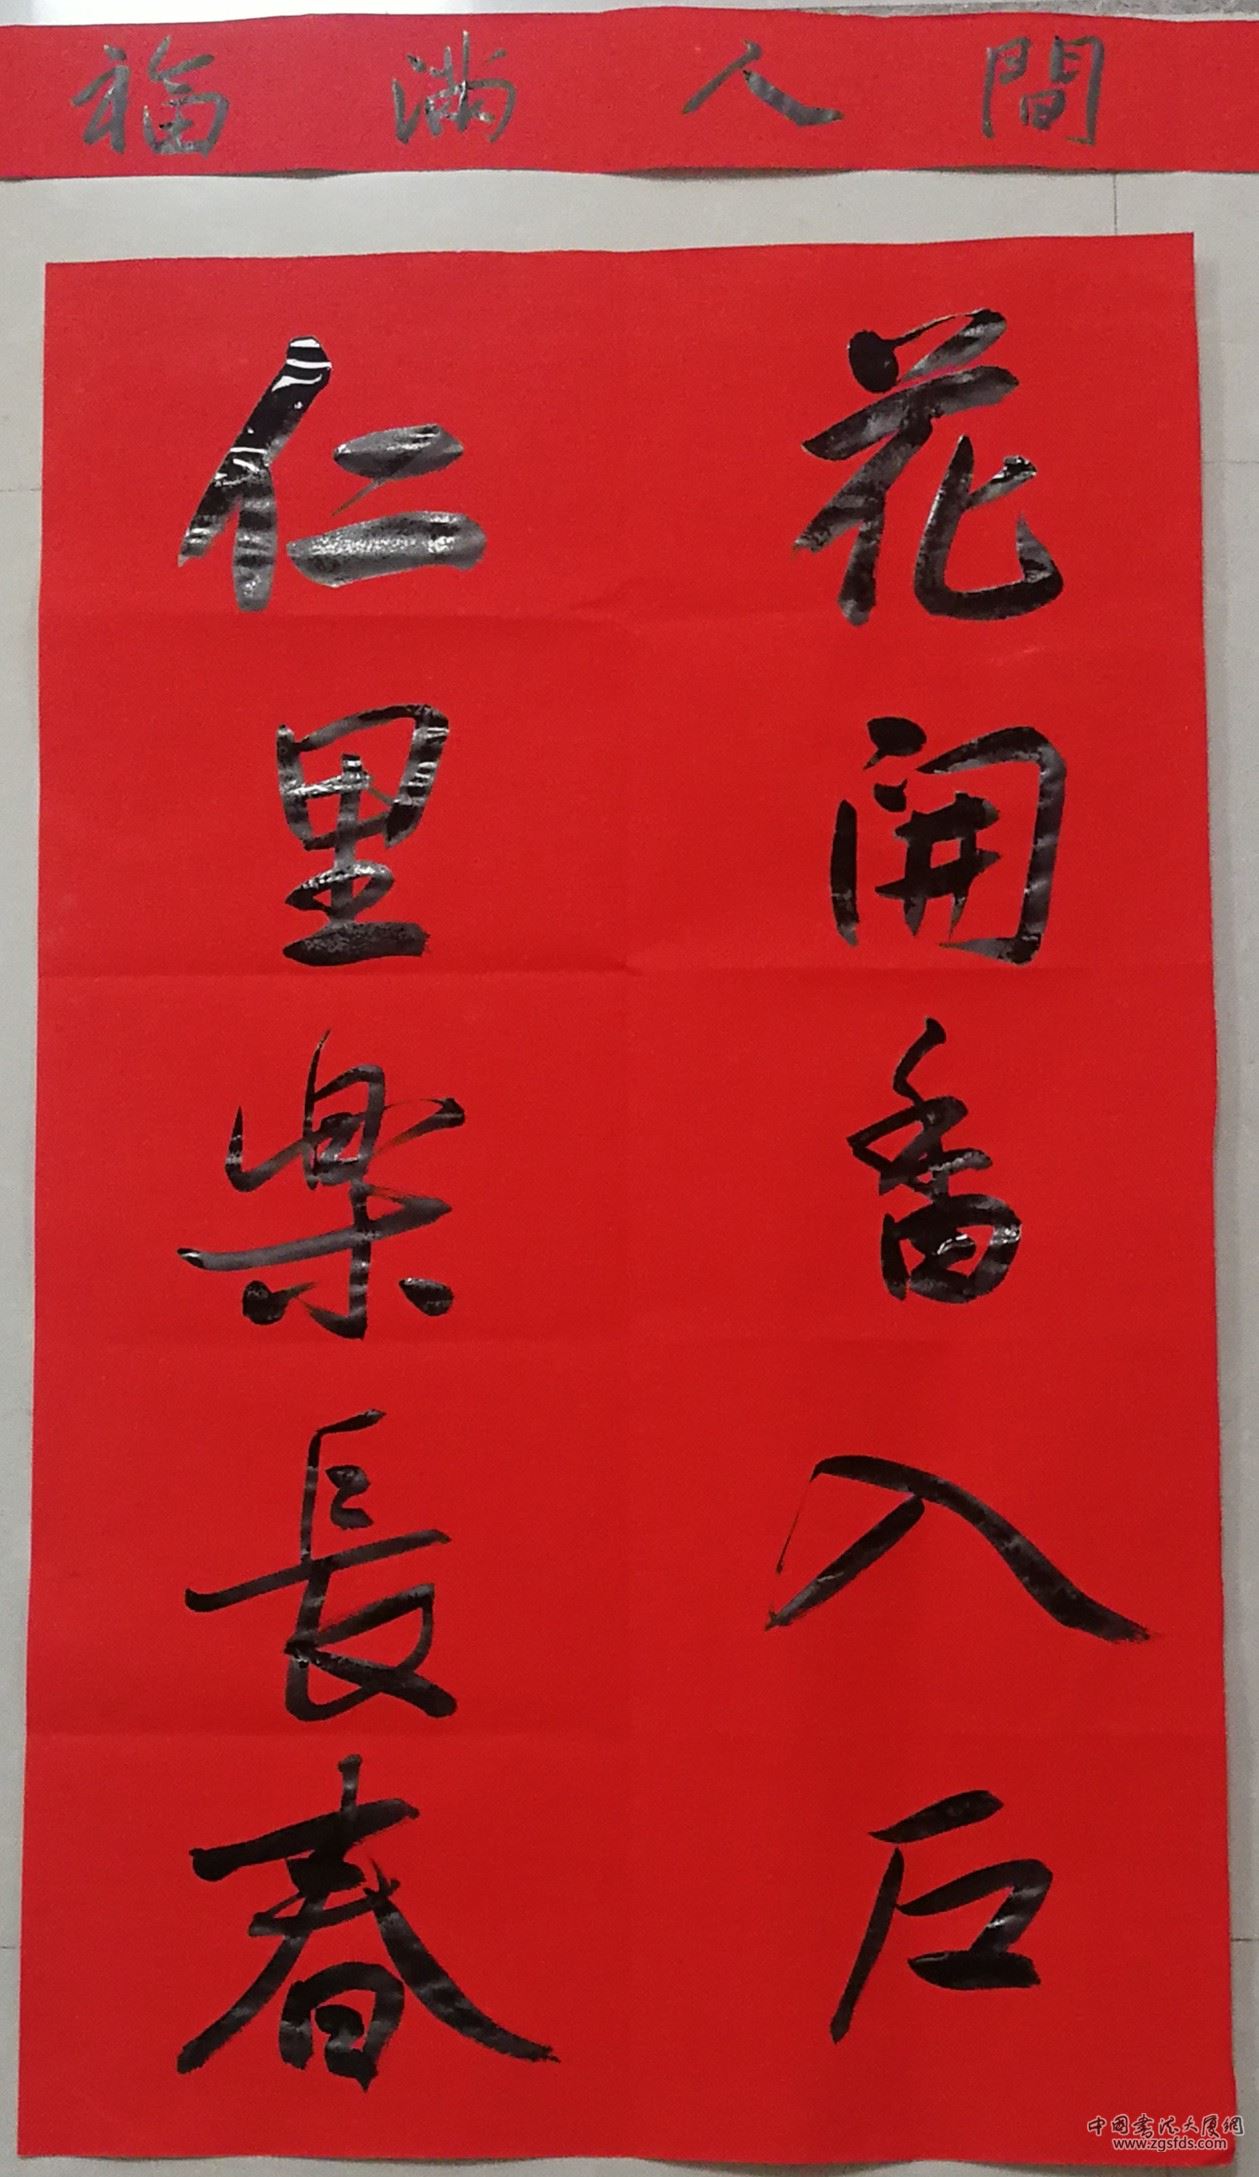 福滿人間
花開香入户
仁里樂長春
中国书法大厦網
www.zgsfds.com